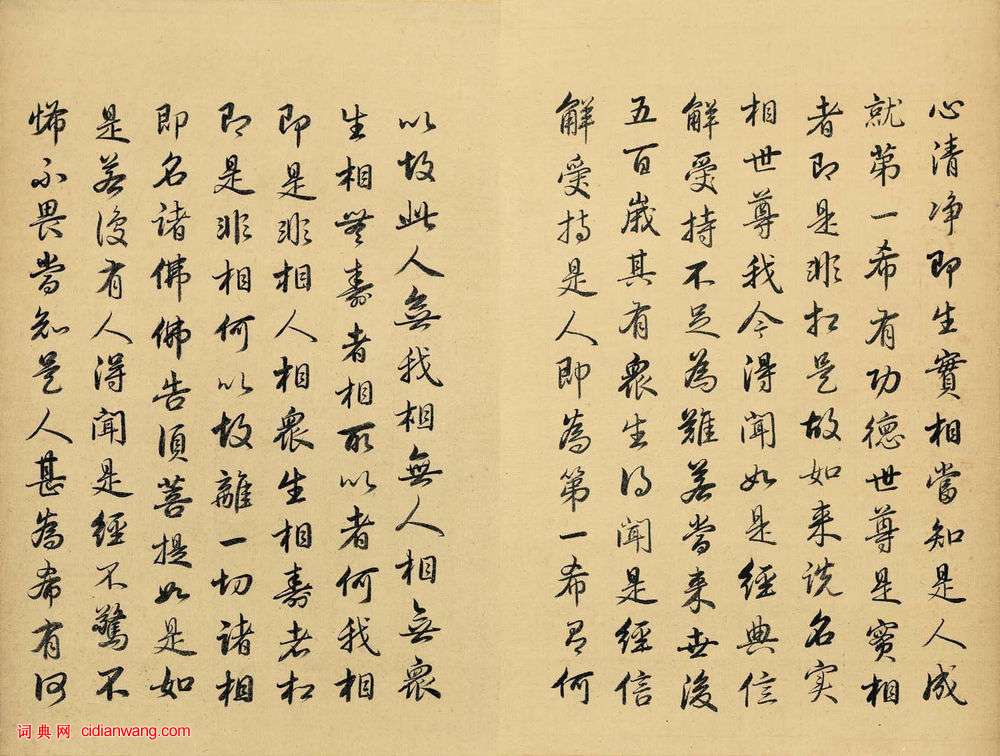 心清净即生實相當知是人成
就第一希有功德世尊是實相
者即是非相是故如来説名实
相世尊我今得聞如是經典信
解受持不足為難若當来世後
五百歲其有衆生得聞是經信
解受持是人即為第一希有何
以故此人無我相無人相無衆
生相無壽者相所以者何我相
即是非相人相衆生相壽者相
即是非相何以故離一切諸相
即名諸佛佛告須菩提如是如
是若復有人得聞是經不驚不
怖不畏當知是人甚為希有何
词典网 cidianwang.com